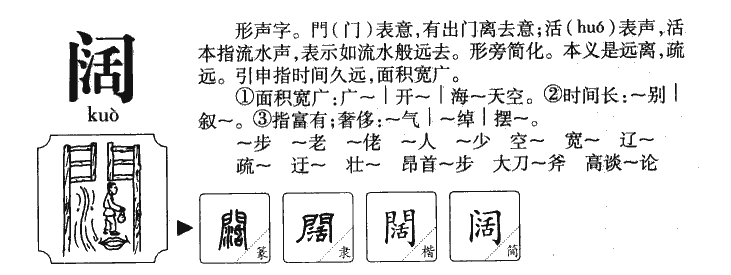 阔
kuò
形声字。門(门)表意,有出门离去意;活(huó)表声,活
本指流水声,表示如流水般远去。形旁简化。本义是远离,疏
远。引申指时间久远,面积宽广。
①面积宽广:广～|开～|海～天空。②时间长:～别|
叙～。③指富有;奢侈:～气|～绰|摆～。
～步 ～老 ～佬 ～人 ～少 空～ 宽～ 辽～
疏～ 迂～ 壮～ 昂首～步 大刀～斧 高谈～论
闊 篆 闊 隶 闊 楷 阔 简